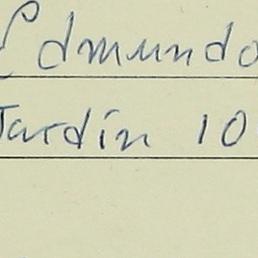 Edmundo
Jardín 10